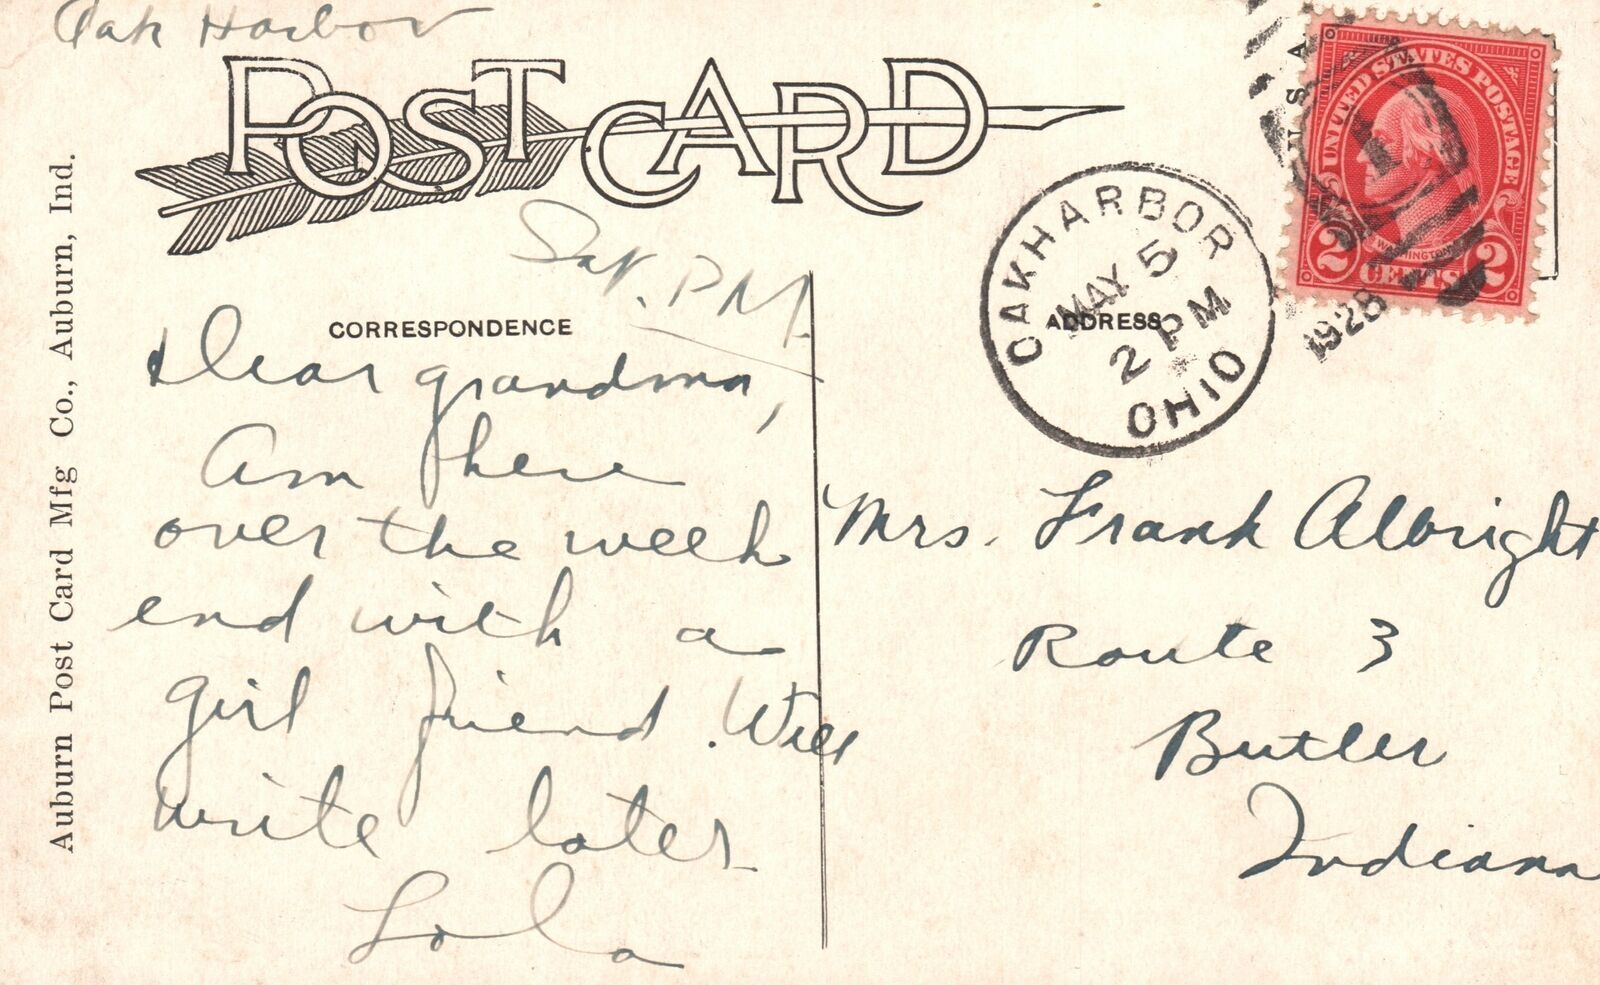 Oak Harbor
POST CARD
Auburn Post Card Mfg Co., Auburn, Ind.
Sat. P.M.
CORRESPONDENCE
Dear grandma,
Am here
over the week
end with a
girl friend. Will
write later
Lola
OAKHARBOR
MAY 5
2 PM
OHIO
1928
ADDRESS
UNITED STATES POSTAGE
1
WASHINGTON
2 CENTS 2
U S A
Mrs. Frank Albright
Route 3
Butler
Indiana